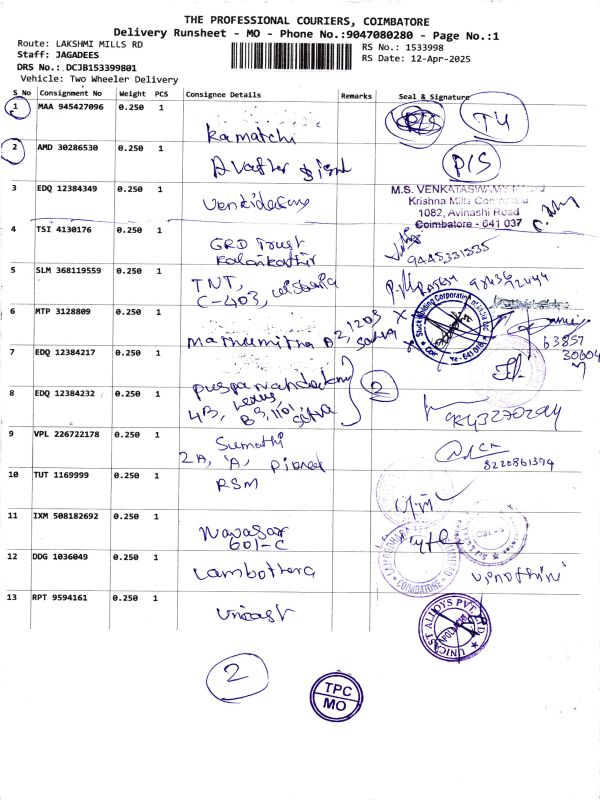 THE PROFESSIONAL COURIERS, COIMBATORE
Delivery Runsheet - MO - Phone No.:9047080280 - Page No.:1
Route: LAKSHMI MILLS RD
Staff: JAGADEES
DRS No.: DCJB153399801
Vehicle: Two Wheeler Delivery
RS No.: 1533998
RS Date: 12-Apr-2025
S_No Consignment No Weight PCS Consignee Details Remarks Seal & Signature
1 MAA 945427096 0.250 1
Kamatchi
TU
2 AMD 30286530 0.250 1
D/S
3 EDQ 12384349 0.250 1
Venkidasamy
M.S. VENKATASWAMY
Krishna Mills Compound
1082, Avinashi Road
Coimbatore - 641 037
4 TSI 4130176 0.250 1
GRD Trust
Kalaikathir
9445331535
5 SLM 368119559 0.250 1
TNT,
C-403,
6 MTP 3128809 0.250 1
Mathumitha D2, 1203
63857
30604
7 EDQ 12384217 0.250 1
8 EDQ 12384232 0.250 1
4B, Lexus,
B3, 1101
2
9 VPL 226722178 0.250 1
Sumathi
2A, 'A',
8220861394
10 TUT 1169999 0.250 1
RSM
11 IXM 508182692 0.250 1
Navasar
601-C
12 DDG 1036049 0.250 1
Lambothara
COIMBATORE
Vinothini
13 RPT 9594161 0.250 1
Unicast
UNICAST ALLOYS PVT. LTD.
2
TPC
MO